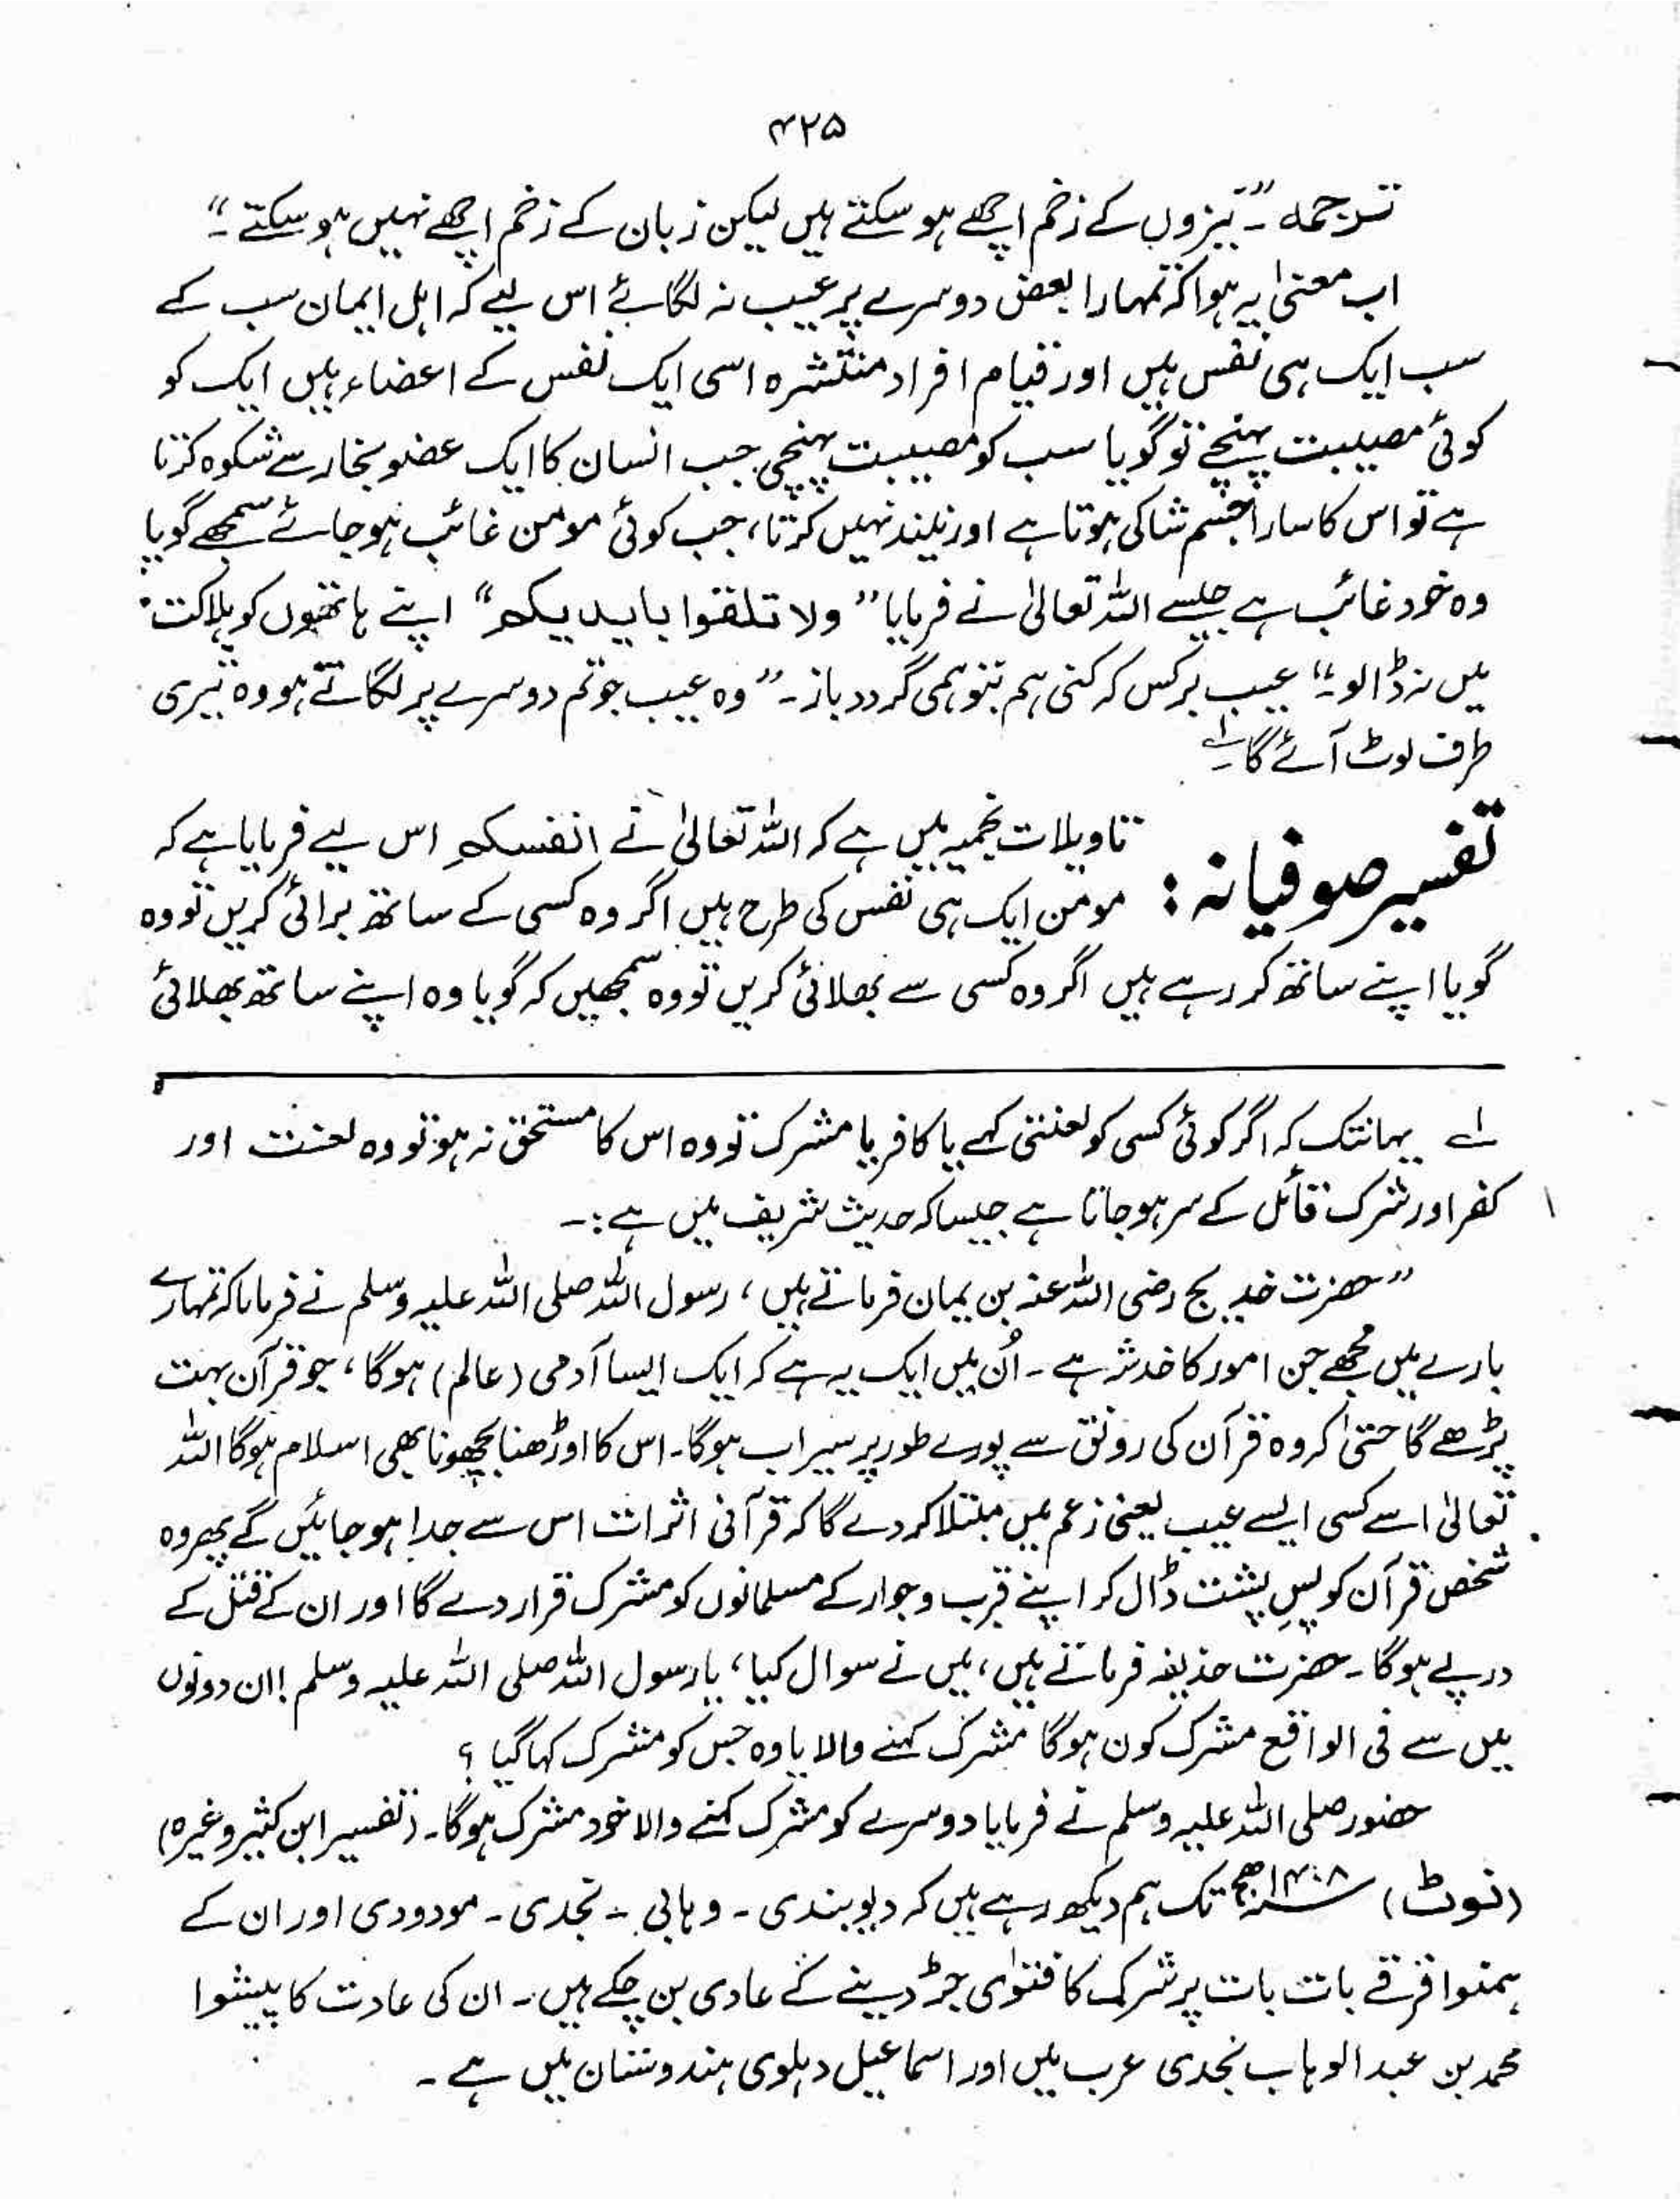 ۴۲۵
ترجمہ ۔ ”نیزوں کے زخم اچھے ہو سکتے ہیں لیکن زبان کے زخم اچھے نہیں ہو سکتے ۔“
اب معنیٰ یہ ہوا کہ تمہارا بعض دوسرے پر عیب نہ لگائے اس لیے کہ اہل ایمان سب کے
سب ایک ہی نفس ہیں اور قیام افراد منتشرہ اسی ایک نفس کے اعضاء ہیں ایک کو
کوئی مصیبت پہنچے تو گویا سب کو مصیبت پہنچی جب انسان کا ایک عضو بخار سے شکوہ کرتا
ہے تو اس کا سارا جسم شاکی ہوتا ہے اور نیند نہیں کرتا ، جب کوئی مومن غائب ہو جائے سمجھے گویا
وہ خود غائب ہے جیسے اللہ تعالیٰ نے فرمایا ”ولا تلقوا بایدیکم“ اپنے ہاتھوں کو ہلاکت
میں نہ ڈالو ۔“ عیب برکس کہ کنی ہم بتو ہمی گردد باز ۔ ”وہ عیب جو تم دوسرے پر لگاتے ہو وہ تیری
طرف لوٹ آئے گا ۔ ؎۱
تفسیر صوفیانہ : تاویلات نجمیہ میں ہے کہ اللہ تعالیٰ نے انفسکم اس لیے فرمایا ہے کہ
مومن ایک ہی نفس کی طرح ہیں اگر وہ کسی کے ساتھ برائی کریں تو وہ
گویا اپنے ساتھ کر رہے ہیں اگر وہ کسی سے بھلائی کریں تو وہ سمجھیں کہ گویا وہ اپنے ساتھ بھلائی
؎۱ یہانتک کہ اگر کوئی کسی کو لعنتی کہے یا کافر یا مشرک تو وہ اس کا مستحق نہ ہو تو وہ لعنت اور
کفر اور شرک قائل کے سر ہو جاتا ہے جیسا کہ حدیث شریف میں ہے :۔
”حضرت خدیج رضی اللہ عنہ بن یمان فرماتے ہیں ، رسول اللہ صلی اللہ علیہ وسلم نے فرمایا کہ تمہارے
بارے میں مجھے جن امور کا خدشہ ہے ۔ اُن میں ایک یہ ہے کہ ایک ایسا آدمی (عالم) ہو گا ، جو قرآن بہت
پڑھے گا حتیٰ کہ وہ قرآن کی رونق سے پورے طور پر سیراب ہو گا ۔ اس کا اوڑھنا بچھونا بھی اسلام ہو گا اللہ
تعالیٰ اسے کسی ایسے عیب یعنی زعم میں مبتلا کر دے گا کہ قرآنی اثرات اس سے جدا ہو جائیں گے پھر وہ
شخص قرآن کو پسِ پشت ڈال کر اپنے قرب و جوار کے مسلمانوں کو مشرک قرار دے گا اور ان کے قتل کے
درپے ہو گا ۔ حضرت حذیفہ فرماتے ہیں ، میں نے سوال کیا ، یا رسول اللہ صلی اللہ علیہ وسلم ! ان دونوں
میں سے فی الواقع مشرک کون ہو گا مشرک کہنے والا یا وہ جس کو مشرک کہا گیا ؟
حضور صلی اللہ علیہ وسلم نے فرمایا دوسرے کو مشرک کہنے والا خود مشرک ہو گا ۔ (تفسیر ابن کثیر وغیرہ)
(نوٹ) ۱۴۰۸ھ تک ہم دیکھ رہے ہیں کہ دیوبندی ۔ وہابی ۔ نجدی ۔ مودودی اور ان کے
ہمنوا فرقے بات بات پر شرک کا فتوٰی جڑ دینے کے عادی بن چکے ہیں ۔ ان کی عادت کا پیشوا
محمد بن عبد الوہاب نجدی عرب میں اور اسماعیل دہلوی ہندوستان میں ہے ۔